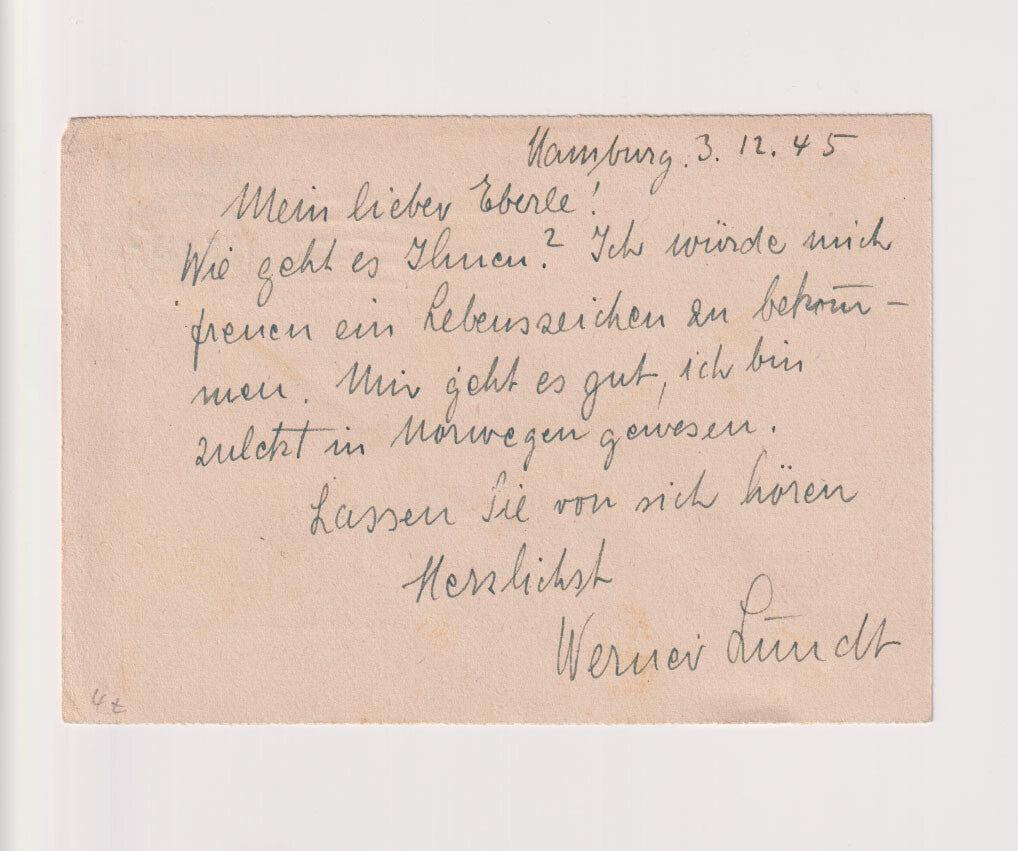 Hamburg. 3. 12. 45
Mein lieber Eberle!
Wie geht es Ihnen? Ich würde mich
freuen ein Lebenszeichen zu bekom̅-
men. Mir geht es gut, ich bin
zuletzt in Norwegen gewesen.
Lassen Sie von sich hören
Herzlichst
Werner Lundt
4 t